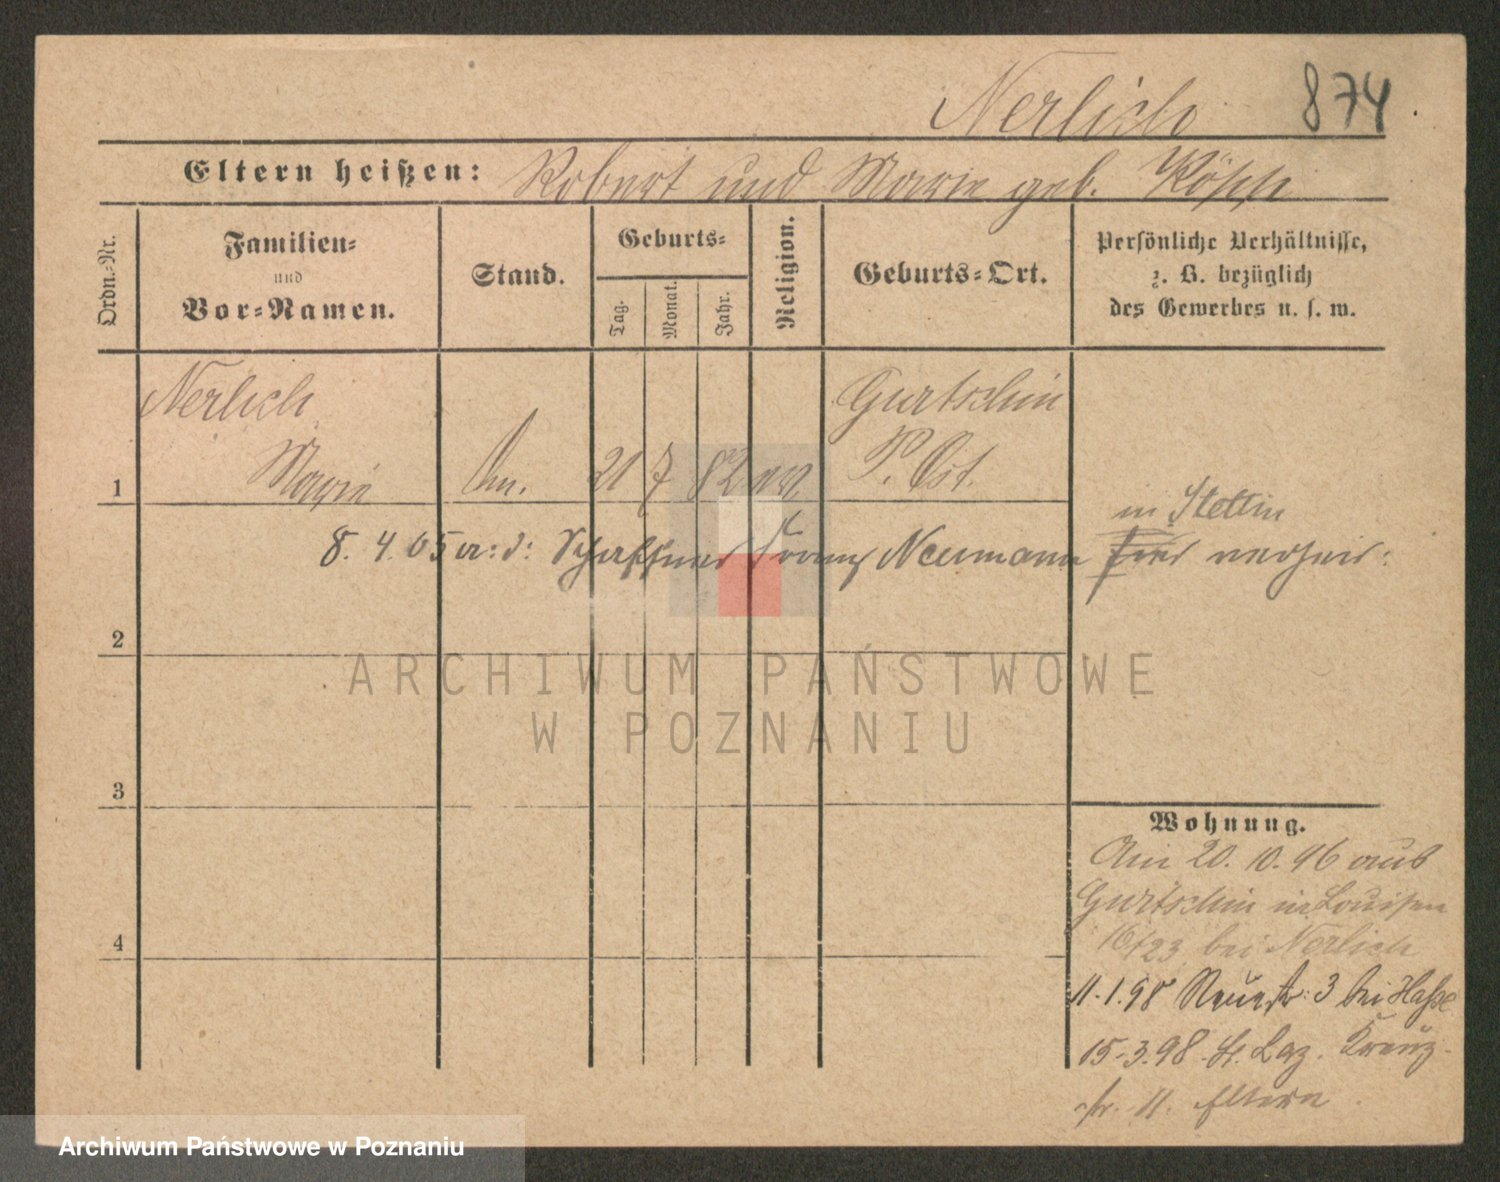 Nerlich 874
Eltern heißen: Robert und Marie geb. Köpp
Ordn.-Nr.
Familien-
und
Vor-Namen.
Stand.
Geburts-
Tag.
Monat.
Jahr.
Religion.
Geburts-Ort.
Persönliche Verhältnisse,
z. B. bezüglich
des Gewerbes u. s. w.
Nerlich Gurtschin
1 Marie 21 7 82 P. Ost.
in Stettin
8. 4. 05 a: d: Schaffner Franz Neumann verheir:
2
ARCHIWUM PAŃSTWOWE
W POZNANIU
3
Wohnung.
Am 20. 10. 96 aus
Gurtschin in Louisen
16/23 bei Nerlich
4
11.1.98 Neuestr: 3 bei Haße
15.3.98 St. Laz. Kreuz-
str. 11. Eltern.
Archiwum Państwowe w Poznaniu